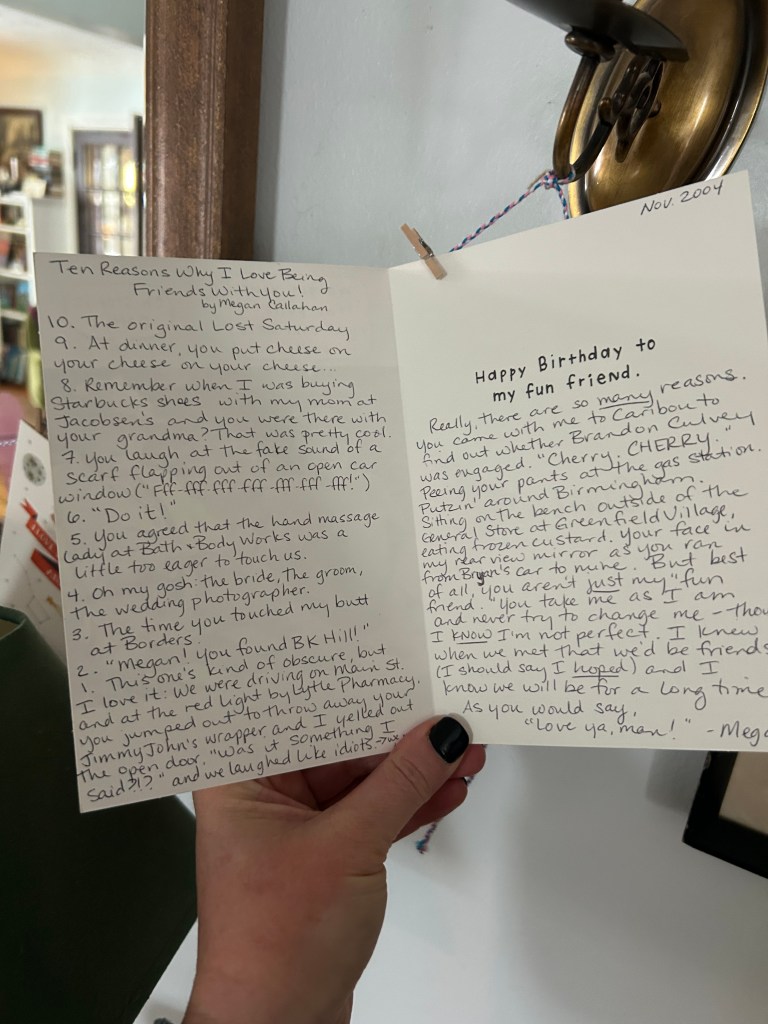 Ten Reasons Why I Love Being
Friends With You!
by Megan Callahan
10. The original Lost Saturday
9. At dinner, you put cheese on
your cheese on your cheese...
8. Remember when I was buying
Starbucks shoes with my mom at
Jacobsen's and you were there with
your grandma? That was pretty cool.
7. You laugh at the fake sound of a
scarf flapping out of an open car
window ("Fff-fff-fff-fff-fff-fff-fff!")
6. "Do it!"
5. You agreed that the hand massage
lady at Bath & Body Works was a
little too eager to touch us.
4. Oh my gosh: the bride, the groom,
the wedding photographer.
3. The time you touched my butt
at Borders.
2. "Megan! you found BK Hill!"
1. This one's kind of obscure, but
I love it: We were driving on Main St.
and at the red light by Lytle Pharmacy,
you jumped out to throw away your
Jimmy John's wrapper and I yelled out
the open door, "Was it something I
said?!?" and we laughed like idiots. → we
Nov. 2004
Happy Birthday to
my fun friend.
Really, there are so many reasons.
You came with me to Caribou to
find out whether Brandon Culvey
was engaged. "Cherry. CHERRY."
Peeing your pants at the gas station.
Putzin' around Birmingham.
Sitting on the bench outside of the
General Store at Greenfield Village,
eating frozen custard. Your face in
my rear view mirror as you ran
from Bryan's car to mine. But best
of all, you aren't just my "fun
friend." You take me as I am
and never try to change me -- thou
I KNOW I'm not perfect. I knew
when we met that we'd be friends
(I should say I hoped) and I
know we will be for a long time
As you would say,
"Love ya, man!" - Mega